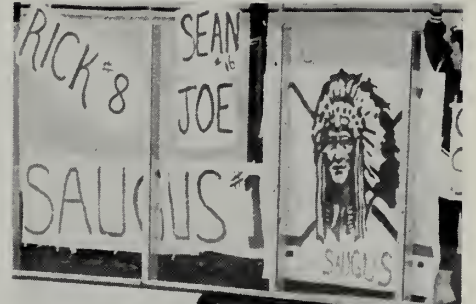 RICK #8
SEAN
#16
JOE
SAUGUS #1
SAUGUS